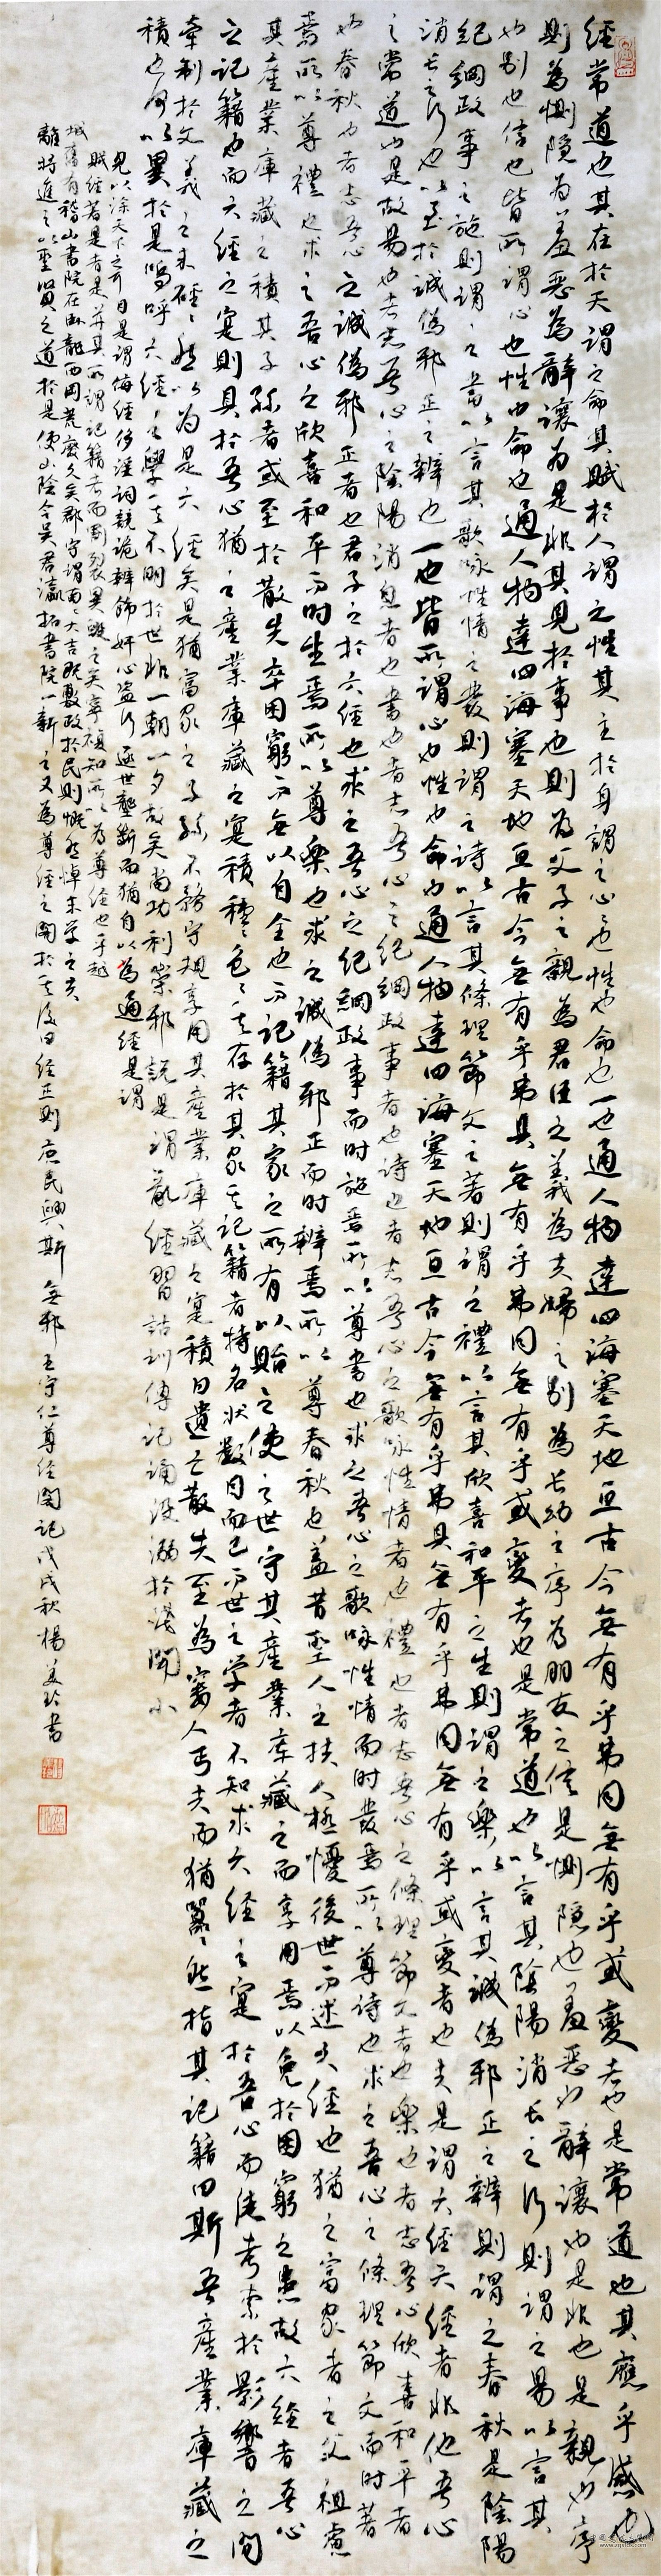 經常道也其在於天謂之命其賦於人謂之性其主於身謂之心心也性也命也一也通人物達四海塞天地亘古今無有乎弗具無有乎弗同無有乎或變者也是常道也其應乎感也
則為惻隱為羞惡為辭讓為是非其見於事也則為父子之親為君臣之義為夫婦之別為長幼之序為朋友之信是惻隱也羞惡也辭讓也是非也是親也序
也別也信也皆所謂心也性也命也通人物達四海塞天地亘古今無有乎弗具無有乎弗同無有乎或變者也是常道也以言其陰陽消長之行則謂之易以言其
紀綱政事之施則謂之書以言其歌咏性情之發則謂之詩以言其條理節文之著則謂之禮以言其欣喜和平之生則謂之樂以言其誠偽邪正之辨則謂之春秋是陰陽
消長之行也以至於誠偽邪正之辨也一也皆所謂心也性也命也通人物達四海塞天地亘古今無有乎弗具無有乎弗同無有乎或變者也夫是謂六經六經者非他吾心
之常道也是故易也者志吾心之陰陽消息者也書也者志吾心之紀綱政事者也詩也者志吾心之歌咏性情者也禮也者志吾心之條理節文者也樂也者志吾心欣喜和平者
也春秋也者志吾心之誠偽邪正者也君子之於六經也求之吾心之紀綱政事而時施焉所以尊書也求之吾心之歌咏性情而時發焉所以尊詩也求之吾心之條理節文而時著
焉所以尊禮也求之吾心之欣喜和平而時生焉所以尊樂也求之誠偽邪正而時辨焉所以尊春秋也蓋昔聖人之扶人極憂後世而述六經也猶之富家者之父祖慮
其產業庫藏之積其子孫者或至於散失卒困窮而無以自全也而記籍其家之所有以貽之使之世守其產業庫藏之而享用焉以免於困窮之患故六經者吾心
之記籍也而六經之實則具於吾心猶之產業庫藏之實積種種色色具存於其家其記籍者特名狀數目而已而世之学者不知求六經之實於吾心而徒考索於影響之間
牽制於文義之末硜硜然以為是六經矣是猶富家之子孫不務守視享用其產業庫藏之實積日遺亡散失至為窶人丐夫而猶囂囂然指其記籍曰斯吾產業庫藏之
積也何以異於是嗚呼六經之學其不明於世非一朝一夕故矣尚功利崇邪說是謂亂經習訓詁傳記誦没溺於淺聞小
見以塗天下之耳目是謂侮經侈淫詞競詭辨飾奸心盜行逐世壟斷而猶自以為通經是謂
賊經若是者是并其所謂記籍者而割裂棄毀之矣寧複知所以為尊經也乎越
城舊有稽山書院在臥龍西岡荒廢久矣郡守謂南大吉既敷政於民則慨然悼末学之支
離將進之以聖賢之道於是使山陰令吳君瀛拓書院一新之又為尊經之閣於其後曰經正則庶民興斯無邪王守仁尊經閣記戊戌秋楊美玲書